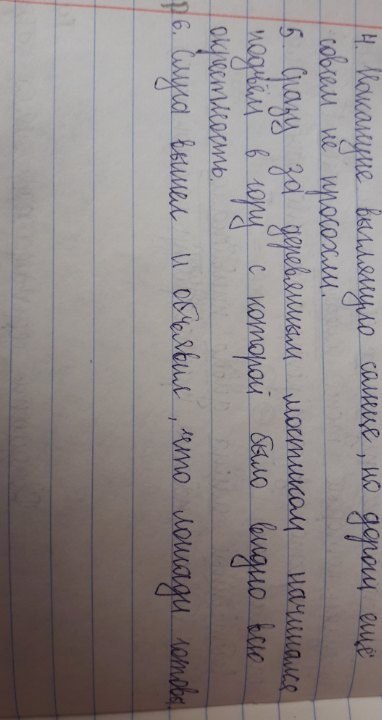 4. Накануне выглянуло солнце, но дороги ещё
совсем не просохли.
5 Сразу за деревянным мостиком начинался
подъём в гору с которой было видно всю
окрестность.
6. Слуга вышел и объявил, что лошади готовы,